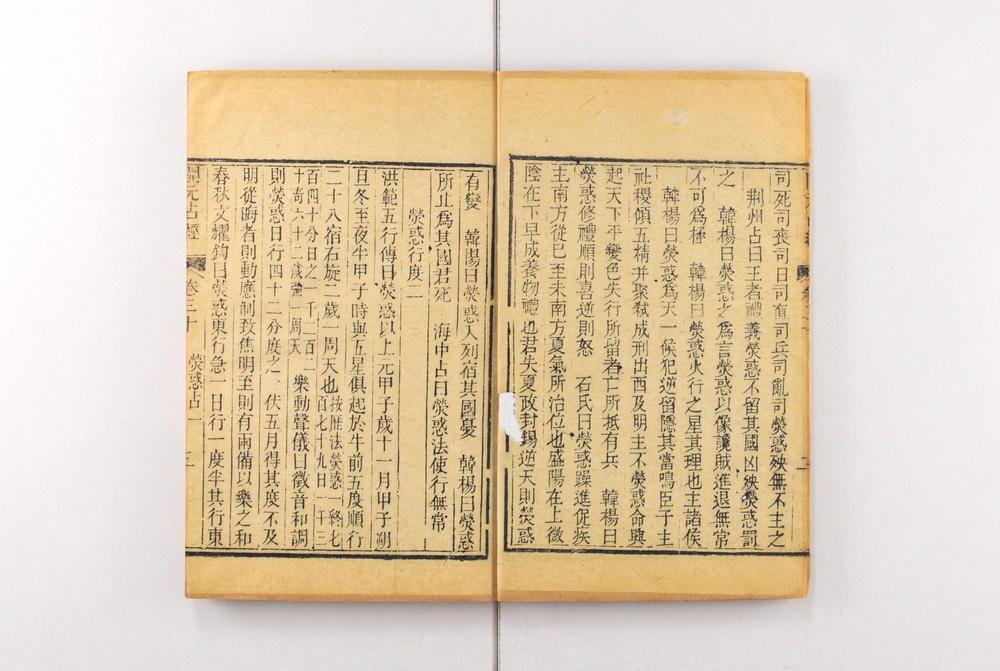 司死司喪司日司直司兵司亂司熒惑殃無不主之
荊州占曰王者禮義熒惑不留其國凶殃熒惑罰
之　韓楊曰熒惑之為言熒惑以像讒賊進退無常
不可為極　韓楊曰熒惑火行之星其理也主諸侯
韓楊曰熒惑為天一候犯逆留隱其當鳴臣子主
社稷傾五精并聚弒成刑出西及明主不熒惑命興
起天下平變色失行所留者亡所抵有兵　韓楊曰
熒惑修禮順則喜逆則怒　石氏曰熒惑躁進促疾
主南方從巳至未南方夏氣所治位也盛陽在上微
陰在下早成養物禮也君失夏政封錫逆天則熒惑
有變　韓楊曰熒惑入列宿其國憂　韓楊曰熒惑
所止為其國君死　海中占曰熒惑法使行無常
熒惑行度二
洪範五行傳曰熒惑以上元甲子歲十一月甲子朔
旦冬至夜半甲子時與五星俱起於牛前五度順行
二十八宿右旋二歲一周天也按歷法熒惑一終七
百七十九日一千三
百四十分日之一千二百二
十奇六十二歲強一周天　樂動聲儀曰徵音和調
則熒惑日行四十二分度之一伏五月得其度不及
明從晦者則動應制致焦明至則有兩備以樂之和
春秋文耀鉤曰熒惑東行急一日行一度半其行東
開元占經　卷三十　熒惑占一　三